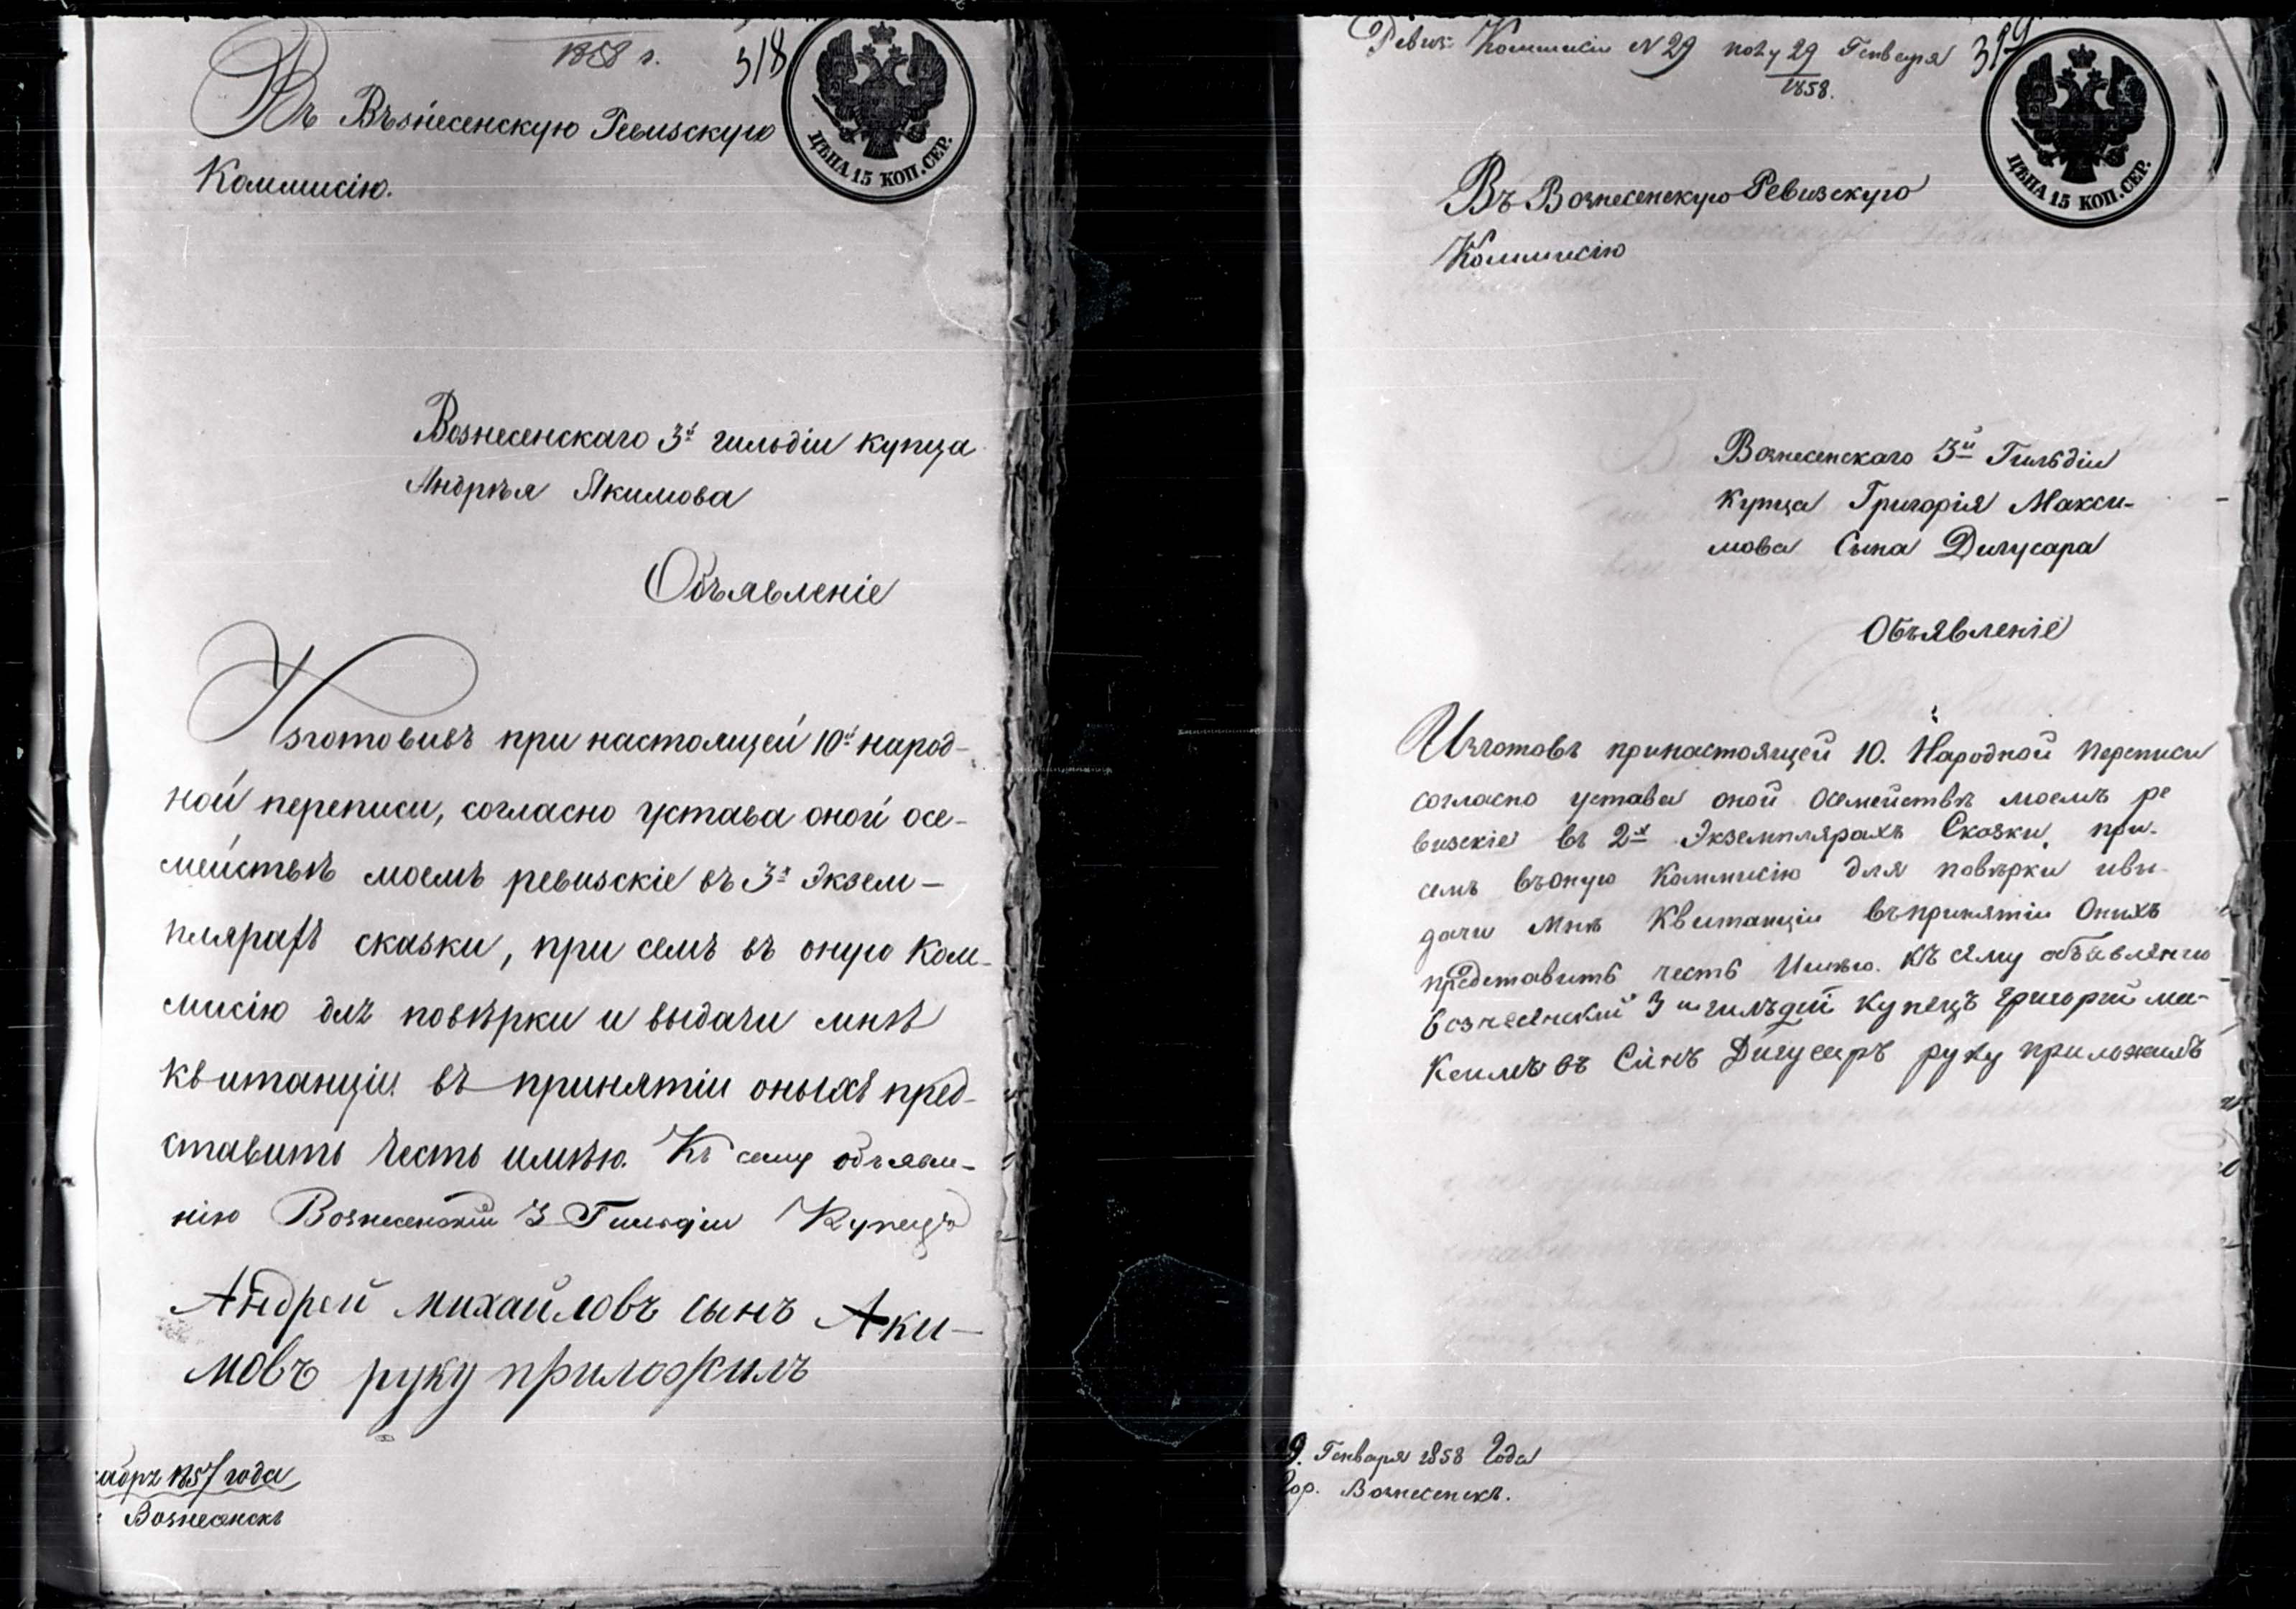 1858 г.
318
ЦѢНА 15 КОП. СЕР.
Въ Възнесенскую Ревизскую
Коммисію.
Вознесенскаго 3й гильдіи купца
Андрѣя Якимова
Объявленіе
Изготовивъ при настоящей 10й народ-
ной переписи, согласно устава оной осе-
мействѣ моемъ ревизскіе въ 3х экзем-
плярахъ сказки, при семъ въ оную Ком-
мисію для повѣрки и выдачи мнѣ
квитанціи въ принятіи оныхъ пред-
ставить честь имѣю. Къ сему объявле-
нію Вознесенскій 3 Гильдіи Купецъ
Андрей Михайловъ сынъ Аки-
мовъ руку приложилъ
кабрѣ 1857 года
Вознесенскъ
Ревиз: Коммисіи N 29 пол. 29 Генваря
1858.
319
ЦѢНА 15 КОП. СЕР.
Въ Вознесенскую Ревизскую
Коммисію
Вознесенскаго 3й Гильдіи
Купца Григорія Макси-
мова Сына Дигусара
Объявленіе
Изготовъ принастоящей 10. Народной Переписи
согласно устава оной осемействѣ моемъ ре
визскіе въ 2х Экземплярахъ Сказки, при-
семъ въоную Коммисію для повѣрки ивы-
дачи Мнѣ Квитанціи въпринятіи Оныхъ
представить честь Имѣю. Къ сему объевленію
вознесенский 3 й гилъдии Купецъ григорий ма-
ксимовъ Синъ Дигусаръ руку приложилъ
9. Генваря 1858 Года
Гор. Вознесенскъ.